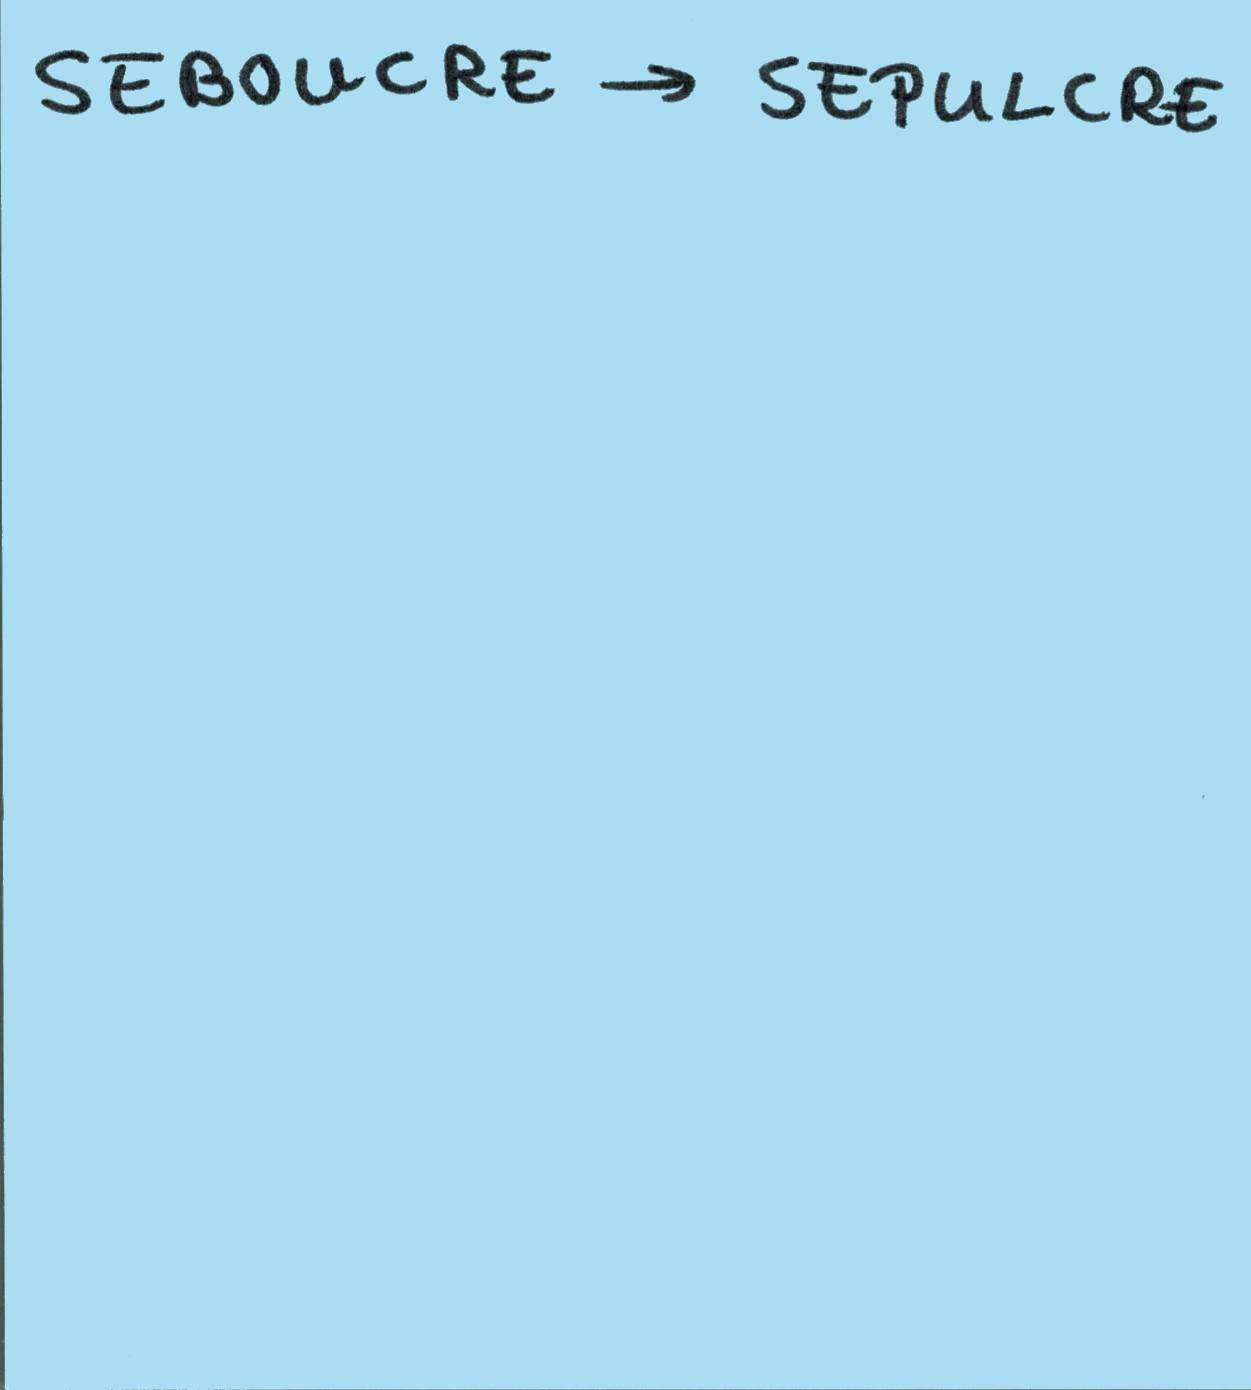 SEBOUCRE → SEPULCRE